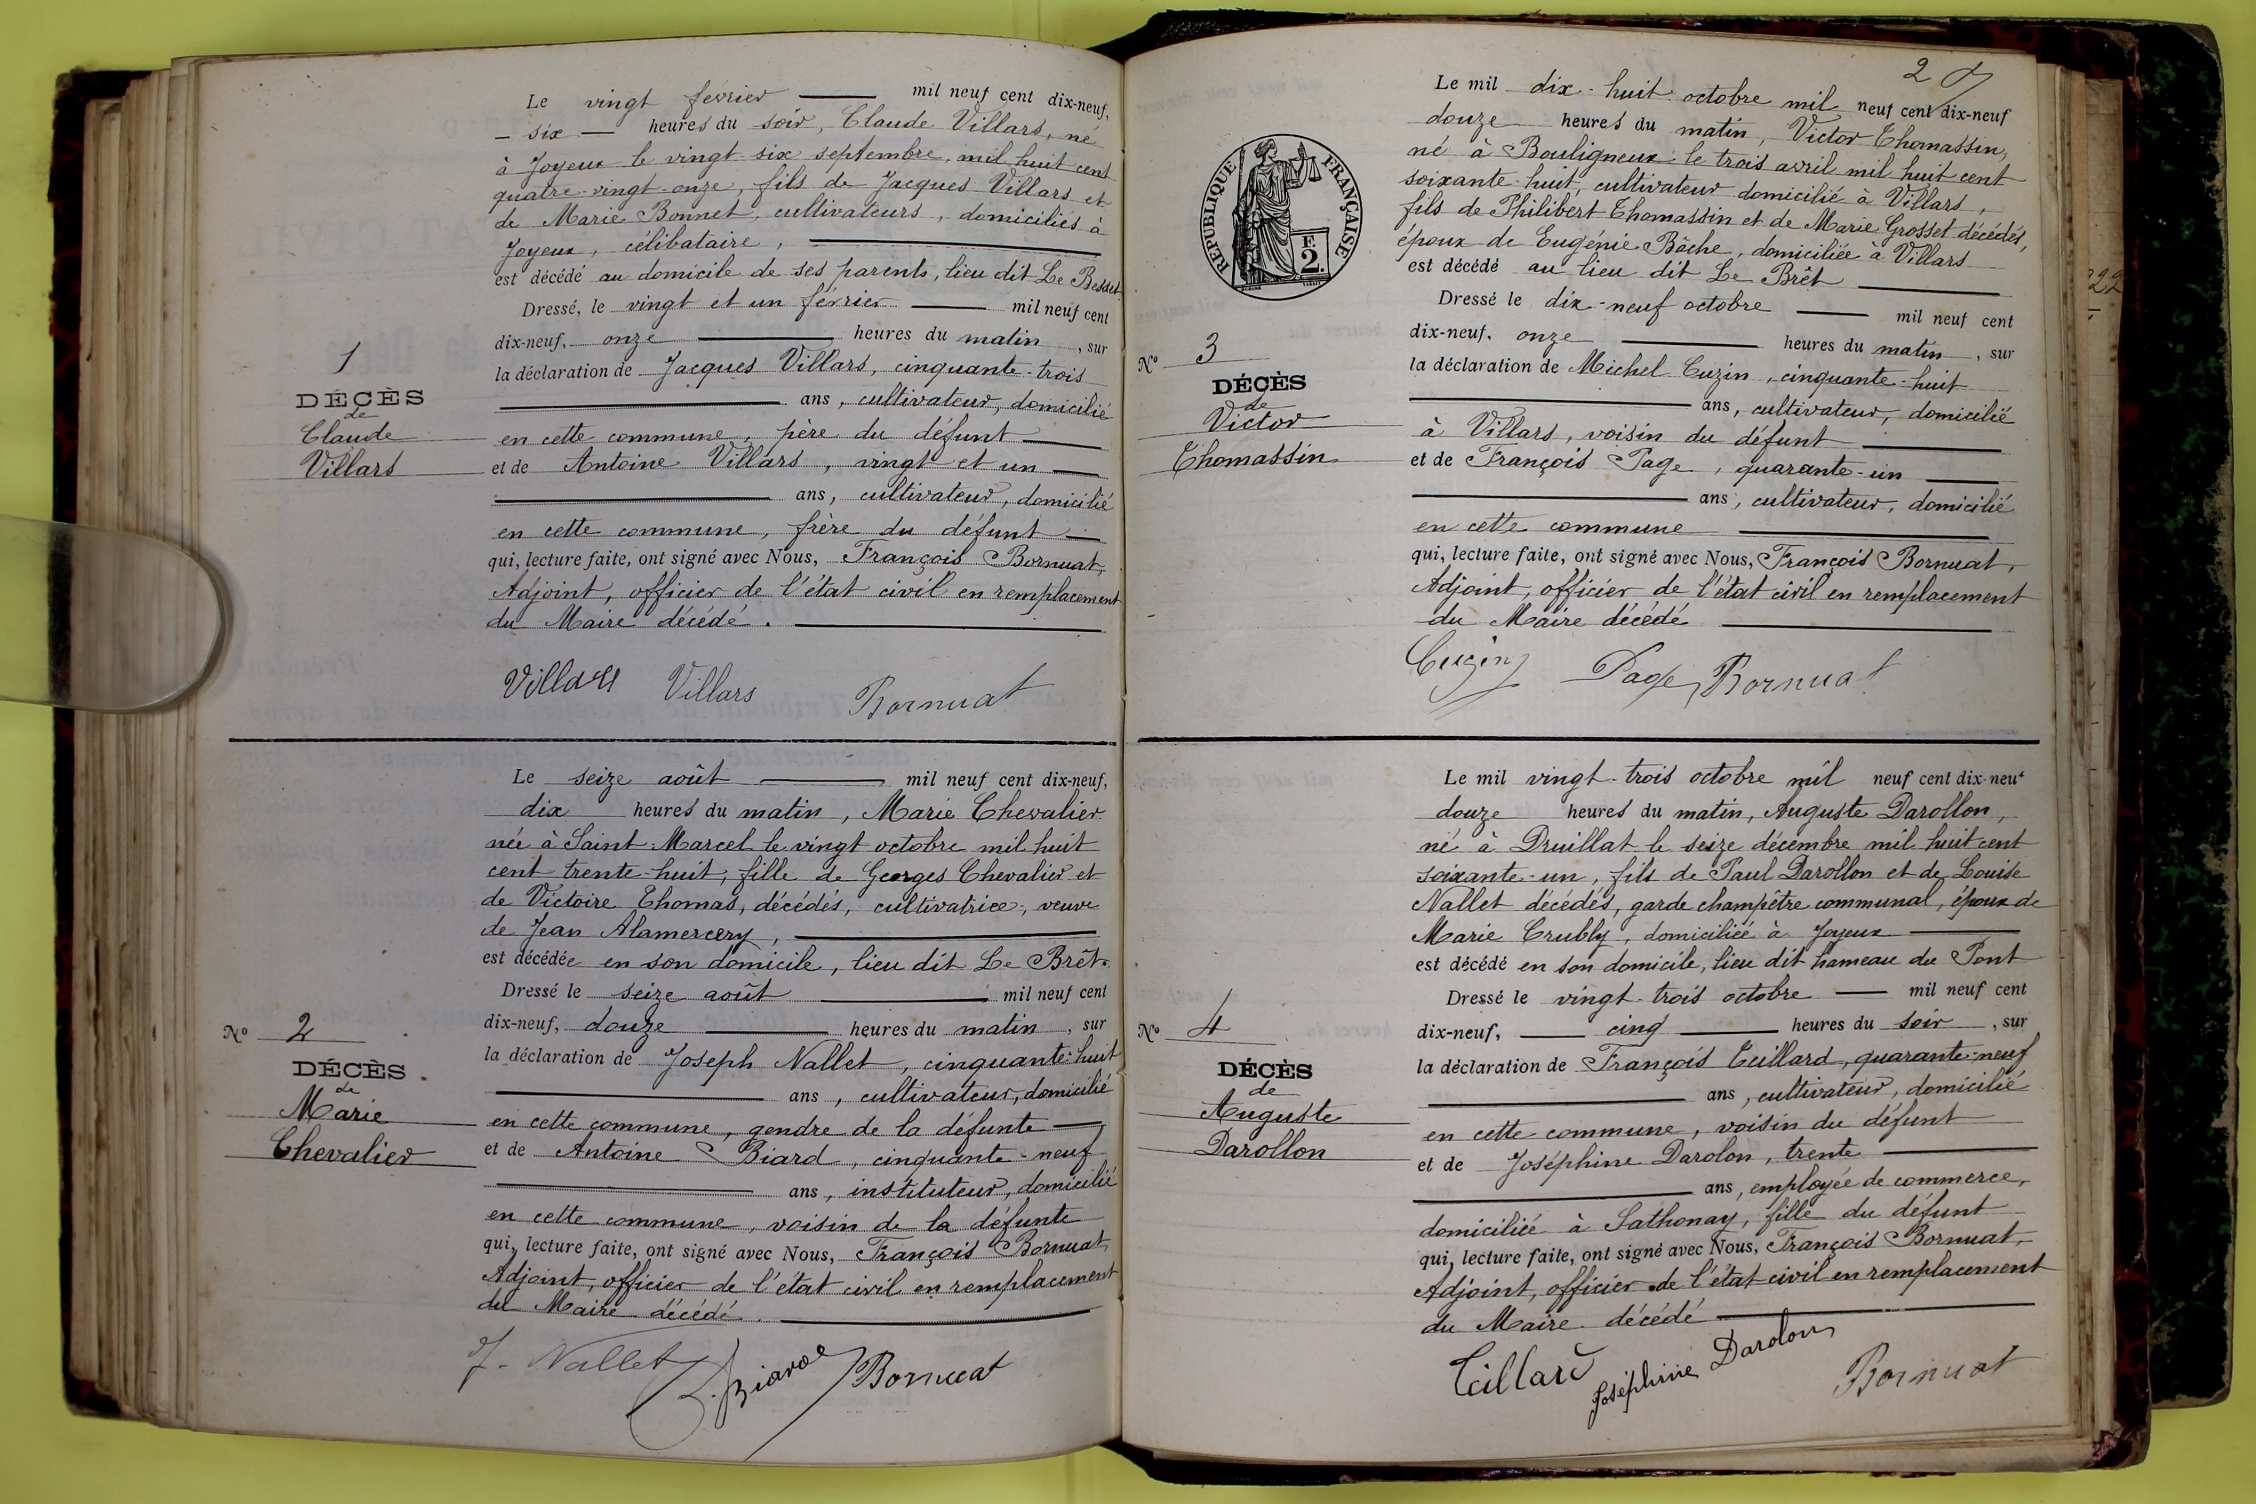 Le vingt février mil neuf cent dix-neuf,
six heures du soir, Claude Villars, né
à Joyeux le vingt-six septembre mil huit cent
quatre-vingt-onze, fils de Jacques Villars et
de Marie Bonnet, cultivateurs, domiciliés à
Joyeux, célibataire,
est décédé au domicile de ses parents, lieu dit Le Besset
Dressé, le vingt et un février mil neuf cent
dix-neuf, onze heures du matin, sur
la déclaration de Jacques Villars, cinquante-trois
ans, cultivateur, domicilié
en cette commune, père du défunt
et de Antoine Villars, vingt et un
ans, cultivateur, domicilié
en cette commune, frère du défunt
qui, lecture faite, ont signé avec Nous, François Bornuat,
Adjoint, officier de l'état civil en remplacement
du Maire décédé.
1
DÉCÈS
de
Claude
Villars
Villars Villars Bornuat
Le seize août mil neuf cent dix-neuf,
dix heures du matin, Marie Chevalier
née à Saint-Marcel le vingt octobre mil huit
cent trente-huit, fille de Georges Chevalier et
de Victoire Thomas, décédés, cultivatrice, veuve
de Jean Alamercery,
est décédée en son domicile, lieu dit Le Brêt.
Dressé le seize août mil neuf cent
dix-neuf, douze heures du matin, sur
la déclaration de Joseph Nallet, cinquante-huit
ans, cultivateur, domicilié
en cette commune, gendre de la défunte
et de Antoine Biard, cinquante-neuf
ans, instituteur, domicilié
en cette commune, voisin de la défunte
qui, lecture faite, ont signé avec Nous, François Bornuat,
Adjoint, officier de l'état civil en remplacement
du Maire décédé.
N° 2
DÉCÈS
de
Marie
Chevalier
J. Nallet Biard Bornuat
2
Le mil dix-huit octobre mil neuf cent dix-neuf
douze heures du matin, Victor Thomassin,
né à Bouligneux le trois avril mil huit cent
soixante-huit, cultivateur domicilié à Villars,
fils de Philibert Thomassin et de Marie Grosset décédés,
époux de Eugénie Bâche, domiciliée à Villars
est décédé au lieu dit Le Brêt
Dressé le dix-neuf octobre mil neuf cent
dix-neuf, onze heures du matin, sur
la déclaration de Michel Cuzin, cinquante-huit
ans, cultivateur, domicilié
à Villars, voisin du défunt
et de François Page, quarante-un
ans, cultivateur, domicilié
en cette commune
qui, lecture faite, ont signé avec Nous, François Bornuat,
Adjoint, officier de l'état civil en remplacement
du Maire décédé
RÉPUBLIQUE FRANÇAISE
E
2.
N° 3
DÉCÈS
de
Victor
Thomassin
Cuzin Page Bornuat
Le mil vingt-trois octobre mil neuf cent dix-neuf
douze heures du matin, Auguste Darollon,
né à Druillat le seize décembre mil huit cent
soixante-un, fils de Paul Darollon et de Louise
Nallet décédés, garde champêtre communal, époux de
Marie Crubly, domiciliée à Joyeux
est décédé en son domicile, lieu dit hameau du Pont
Dressé le vingt-trois octobre mil neuf cent
dix-neuf, cinq heures du soir, sur
la déclaration de François Teillard, quarante-neuf
ans, cultivateur, domicilié
en cette commune, voisin du défunt
et de Joséphine Darolon, trente
ans, employée de commerce,
domiciliée à Sathonay, fille du défunt
qui, lecture faite, ont signé avec Nous, François Bornuat,
Adjoint, officier de l'état civil en remplacement
du Maire décédé
N° 4
DÉCÈS
de
Auguste
Darollon
Teillard Joséphine Darolon Bornuat